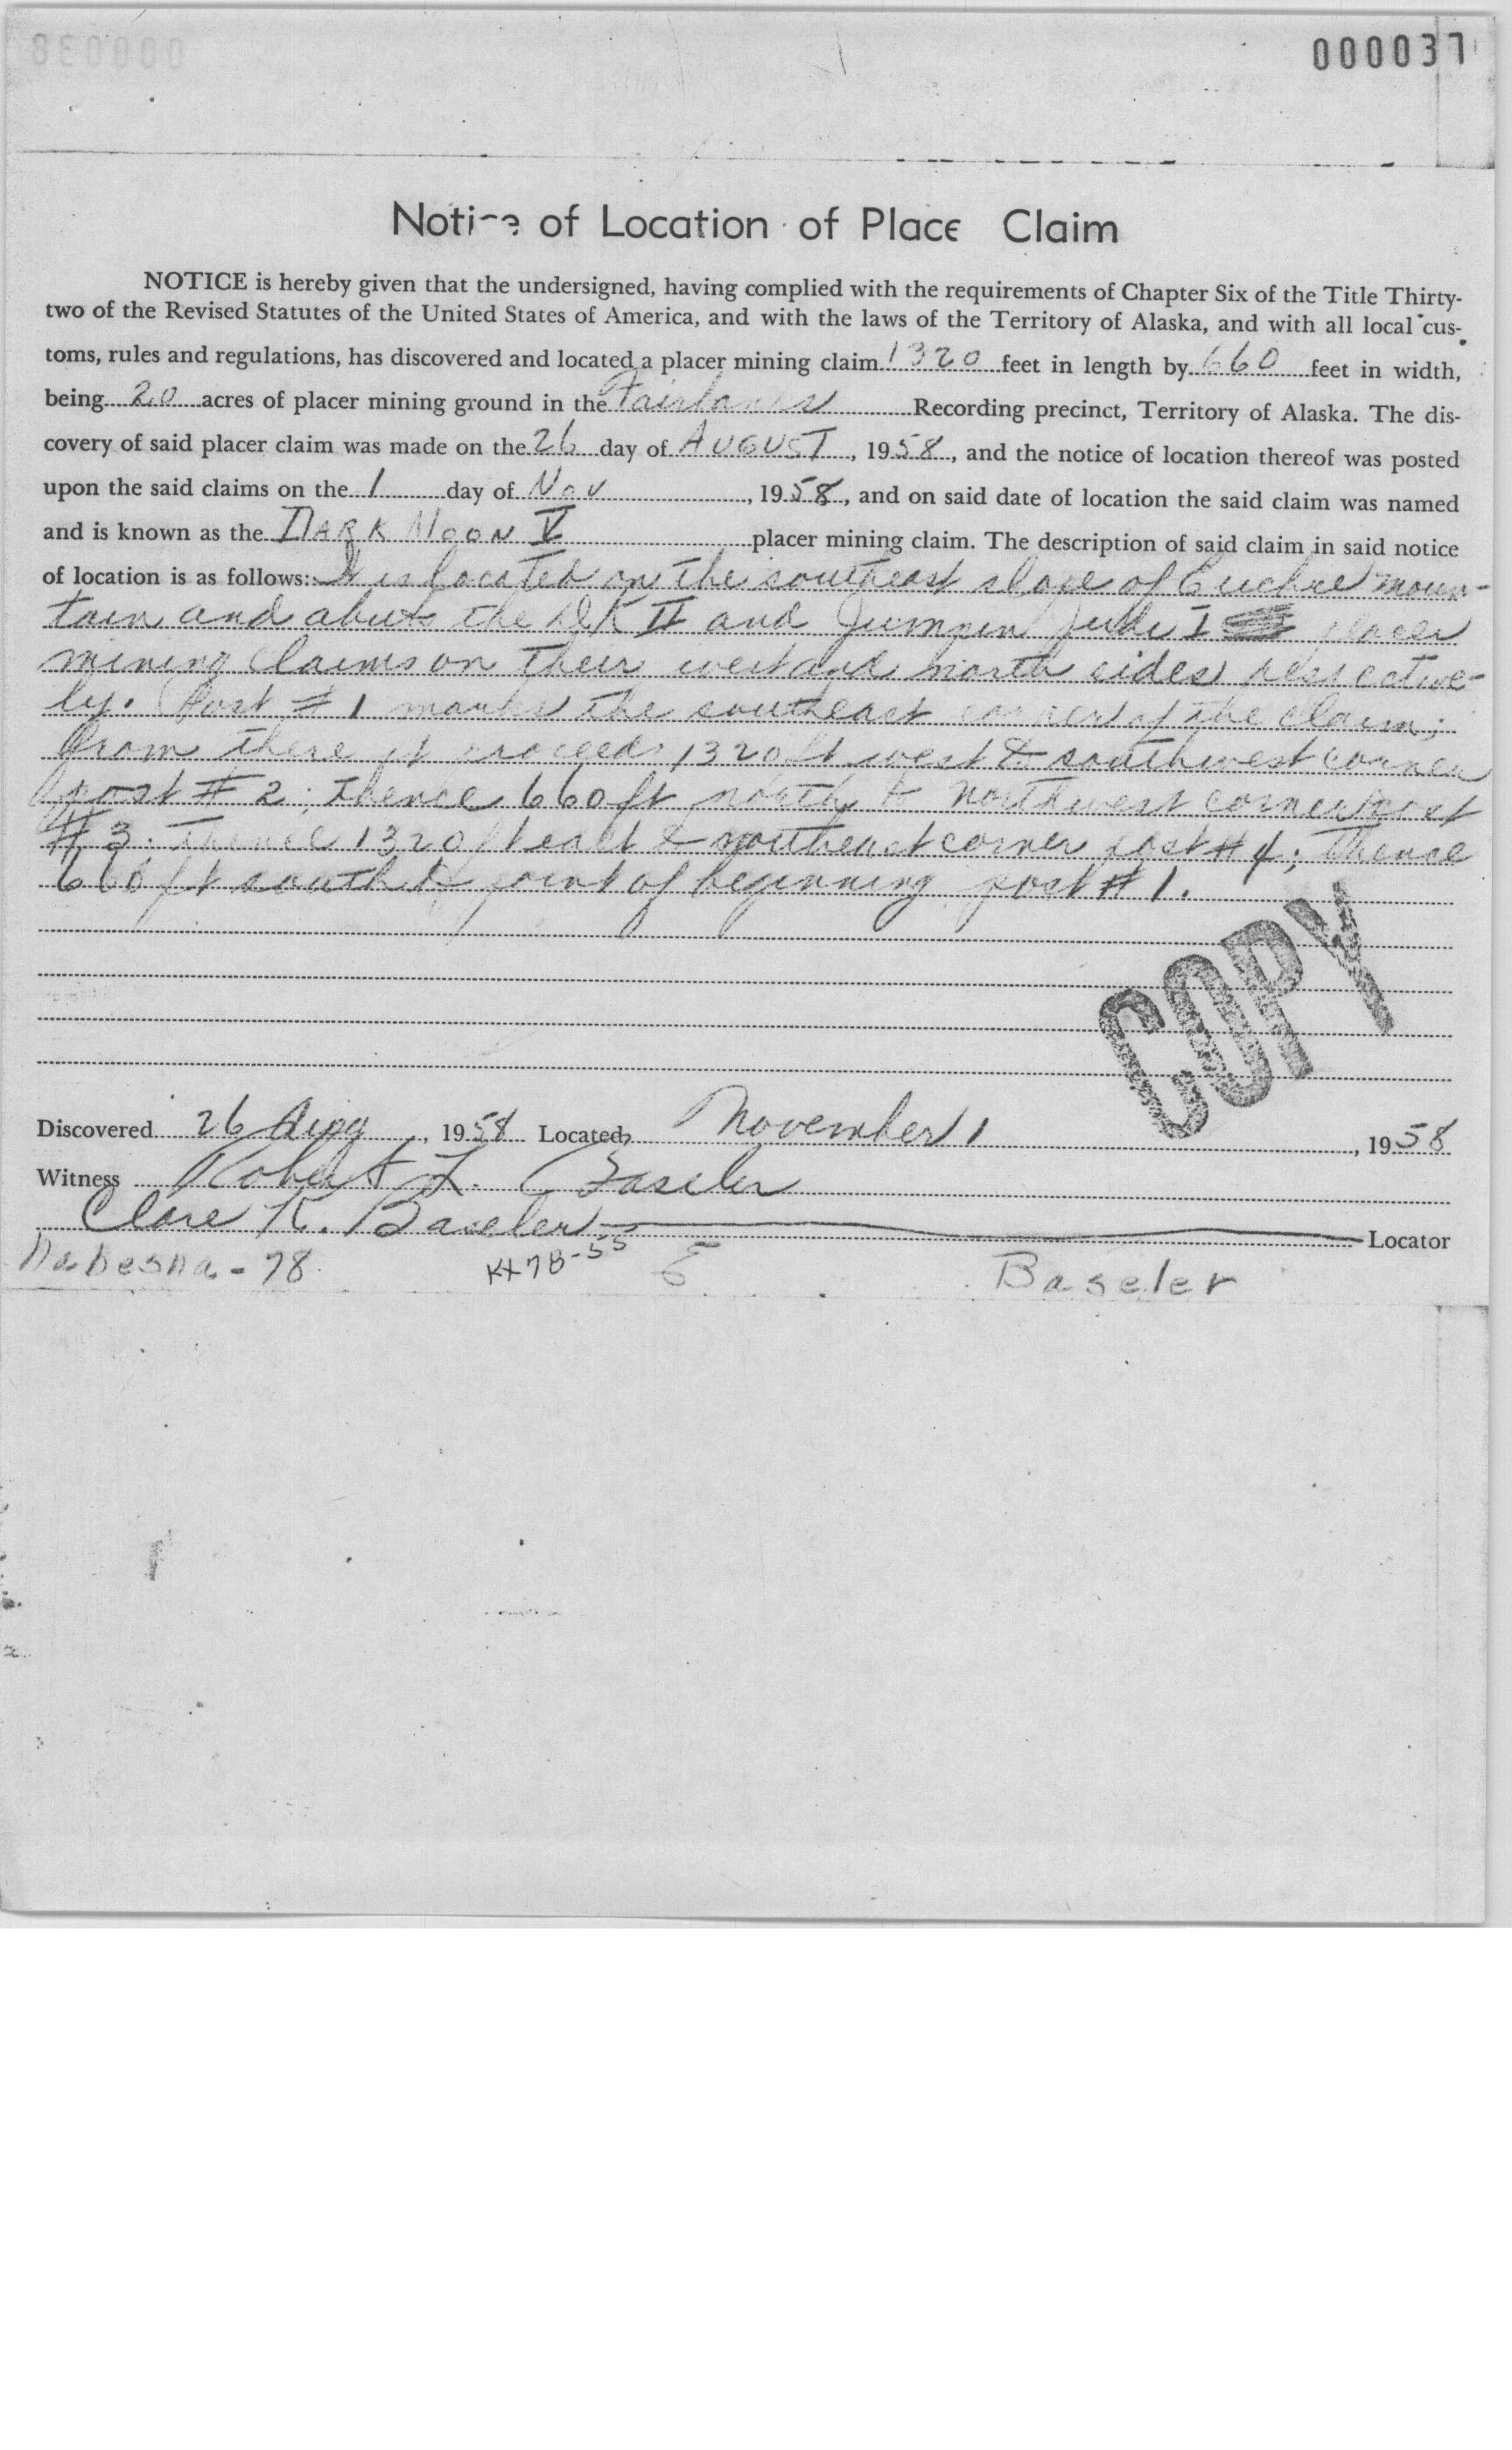 000037
Notice of Location of Place Claim
NOTICE is hereby given that the undersigned, having complied with the requirements of Chapter Six of the Title Thirty-
two of the Revised Statutes of the United States of America, and with the laws of the Territory of Alaska, and with all local cus-
toms, rules and regulations, has discovered and located a placer mining claim 1320 feet in length by 660 feet in width,
being 20 acres of placer mining ground in the Fairbanks Recording precinct, Territory of Alaska. The dis-
covery of said placer claim was made on the 26 day of AUGUST, 1958, and the notice of location thereof was posted
upon the said claims on the 1 day of Nov, 1958, and on said date of location the said claim was named
and is known as the DARK MOON V placer mining claim. The description of said claim in said notice
of location is as follows: It is located on the southeast slope of Euchre moun-
tain and abuts the DK II and Jumpin Jude I placer
mining claims on their west and north sides respective-
ly. Post # 1 marks the southeast corner of the claim;
from there it proceeds 1320 ft west to southwest corner
post # 2; thence 660 ft north to northwest corner post
# 3. Thence 1320 ft east to northeast corner post # 4; thence
660 ft south to point of beginning post # 1.
COPY
Discovered 26 Aug, 1958 Located November 1, 1958
Witness Robert L. Baseler
Clare K. Baseler Locator
Nabesna-78 KX78-55 Baseler